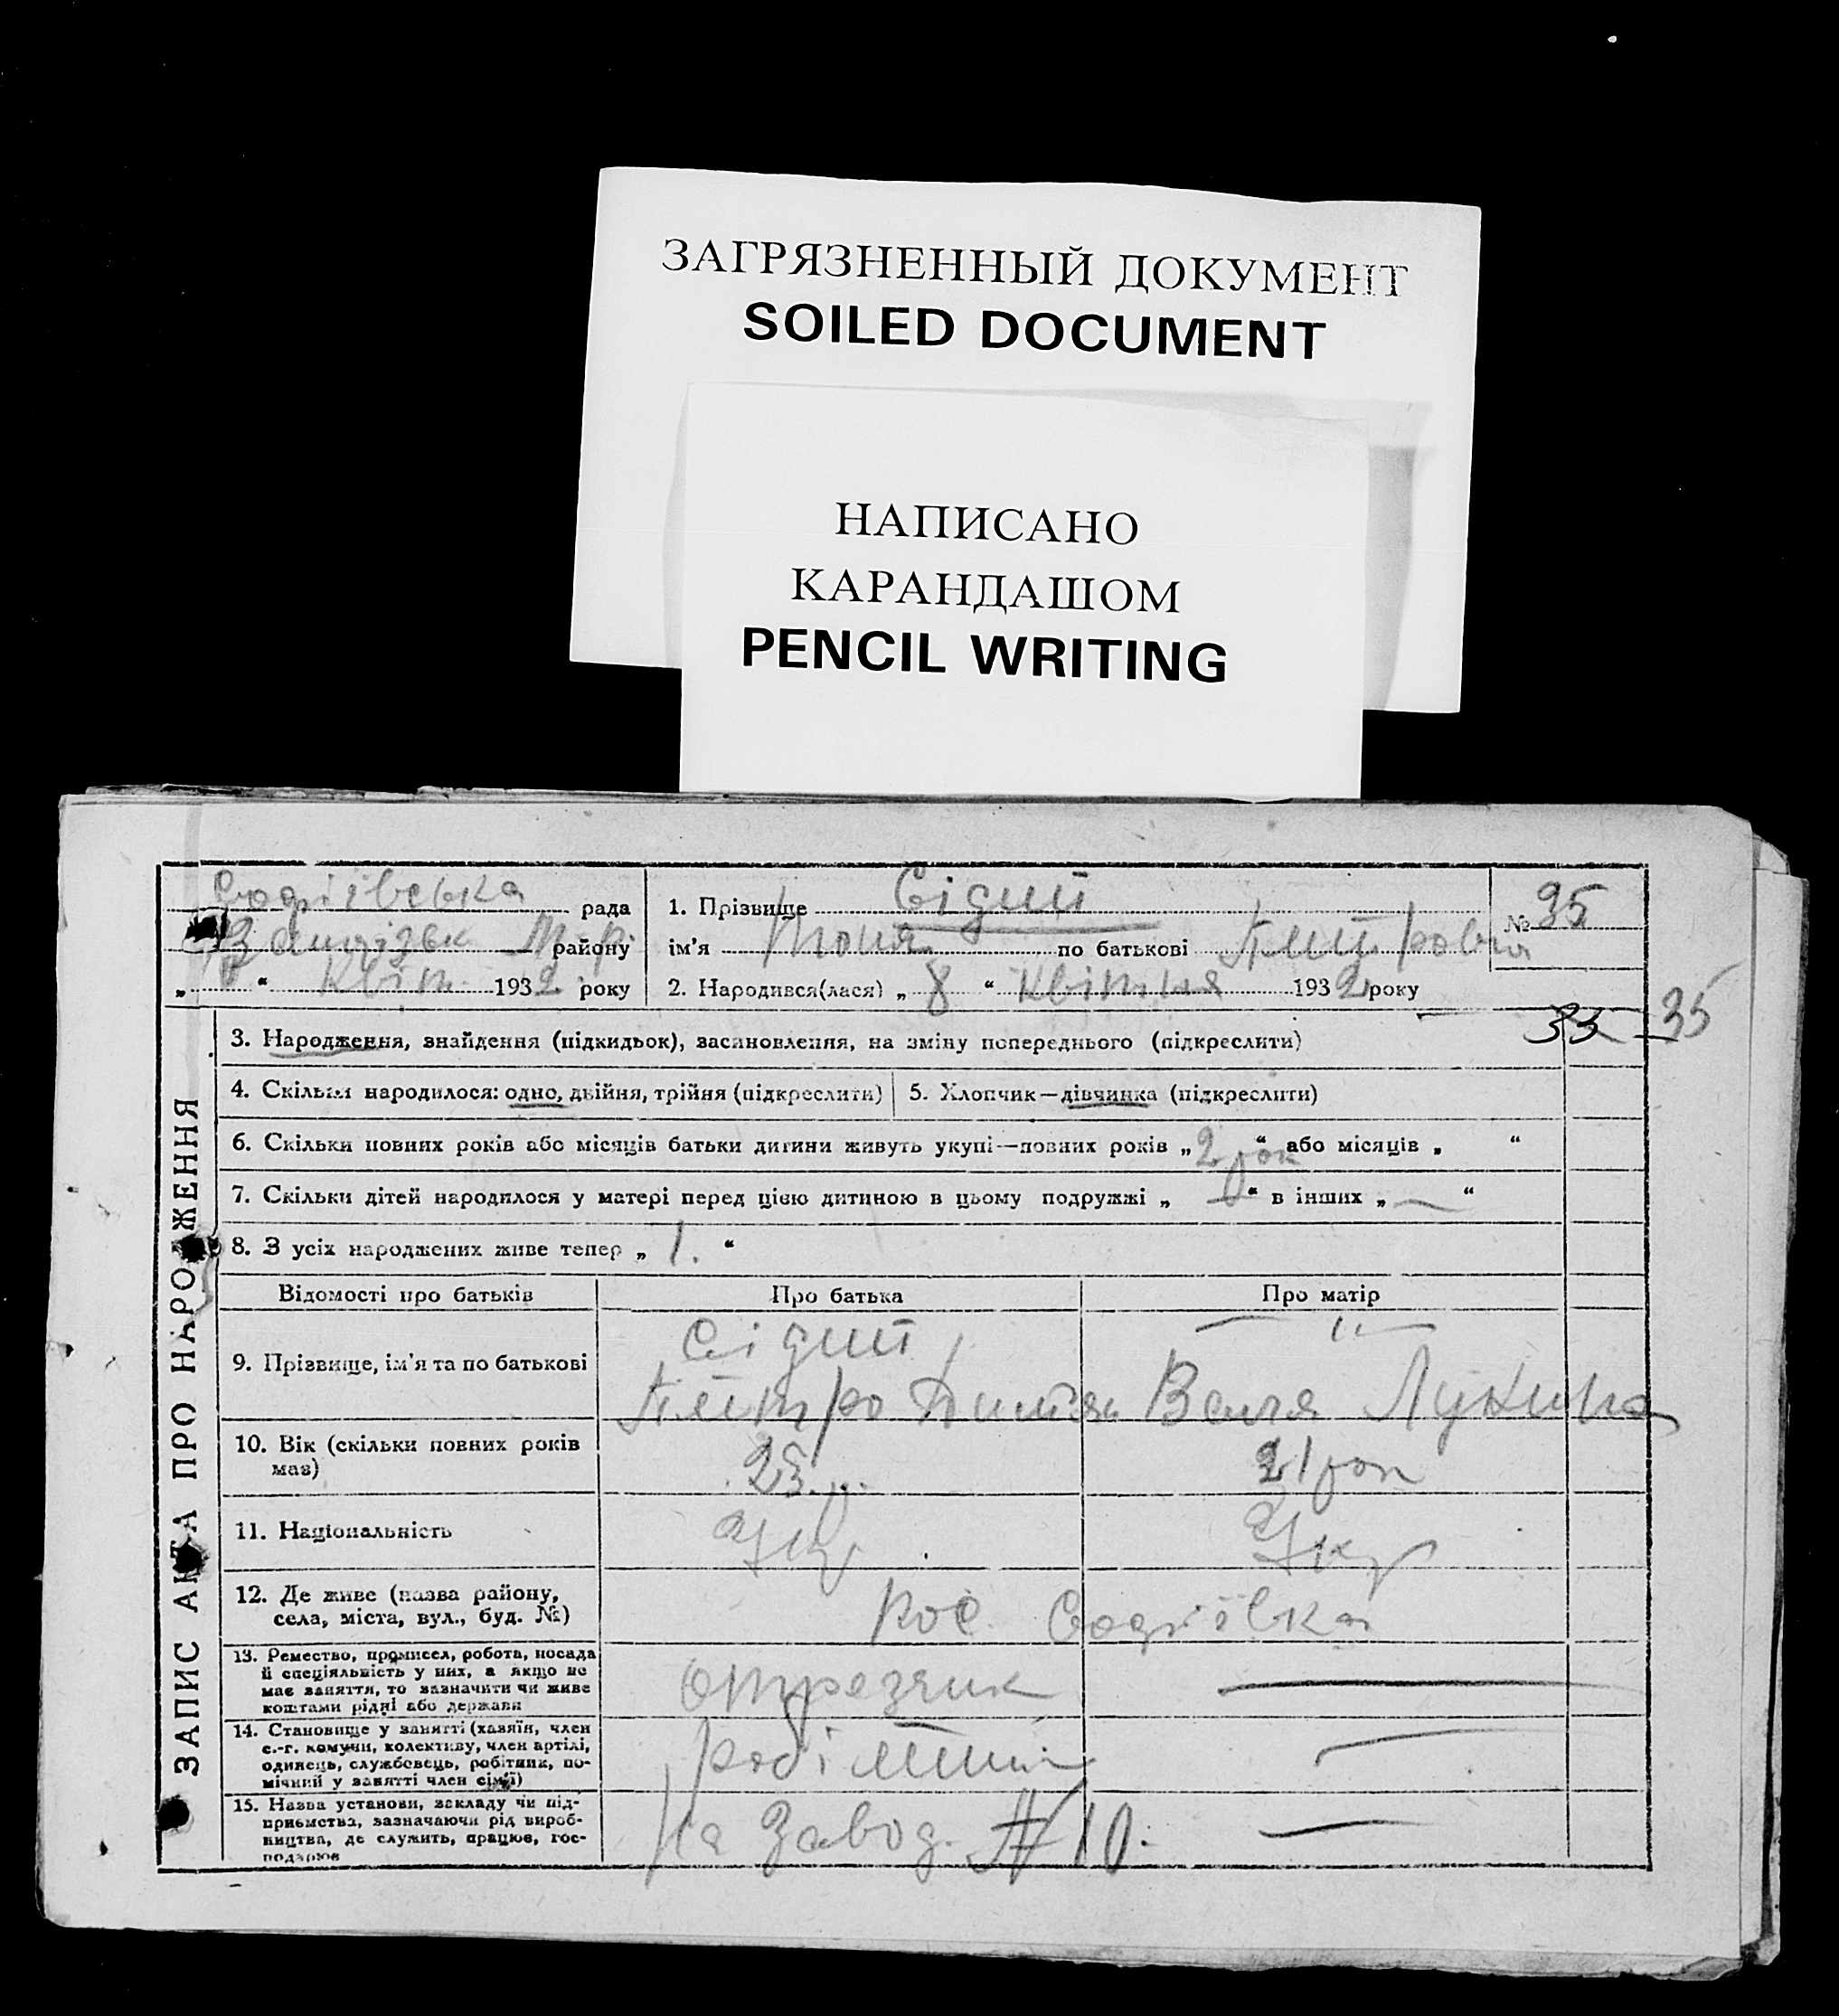 ЗАГРЯЗНЕННЫЙ ДОКУМЕНТ
SOILED DOCUMENT
НАПИСАНО
КАРАНДАШОМ
PENCIL WRITING
Софіївська рада
району
„ “ Квіт. 1932 року
1. Прізвище Сідий
ім'я Тоня по батькові
2. Народився(лася) „ 8 “ Квітня 1932 року
№ 35
33 35
ЗАПИС АКТА ПРО НАРОДЖЕННЯ
3. Народження, знайдення (підкидьок), засиновлення, на зміну попереднього (підкреслити)
4. Скільки народилося: одно, двійня, трійня (підкреслити)
5. Хлопчик—дівчинка (підкреслити)
6. Скільки повних років або місяців батьки дитини живуть укупі—повних років „ 2 рок “ або місяців „ “
7. Скільки дітей народилося у матері перед цією дитиною в цьому подружжі „ “ в інших „ — “
8. З усіх народжених живе тепер „ 1. “
Відомості про батьків
Про батька
Про матір
9. Прізвище, ім'я та по батькові
Сідий
— " —
Валя
10. Вік (скільки повних років має)
25
21 рок
11. Національність
Укр
Укр
12. Де живе (назва району,
села, міста, вул., буд. №)
Рос. Софіївка
13. Ремество, промисел, робота, посада
й спеціяльність у них, а якщо не
має заняття, то зазначити чи живе
коштами рідні або держави
отрезчик
—
14. Становище у занятті (хазяїн, член
с.-г. комуни, колективу, член артілі,
одинець, службовець, робітник, по-
мічний у занятті член сім'ї)
—
15. Назва установи, закладу чи під-
приємства, зазначаючи рід вироб-
ництва, де служить, працює, гос-
подарює
На Завод. № 10.
—